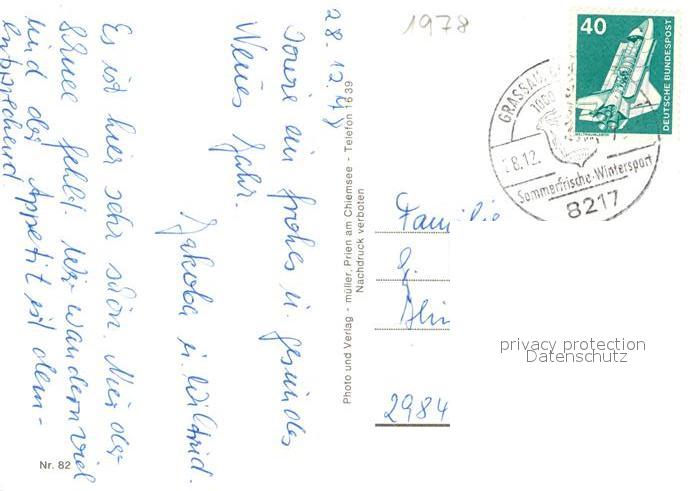 28.12.78
Es ist hier sehr schön. Nur der
Schnee fehlt. Wir wandern viel
und der Appetit ist dem-
entsprechend.
Sowie ein frohes u. gesundes
Neues Jahr.
Jakoba u. Wiltrud.
Nr. 82
Photo und Verlag - müller, Prien am Chiemsee - Telefon 1639
Nachdruck verboten
1978
40
DEUTSCHE BUNDESPOST
WELTRAUMLABOR
GRASSAU
28.12.
Sommerfrische-Wintersport
8217
Familie
2984
privacy protection
Datenschutz